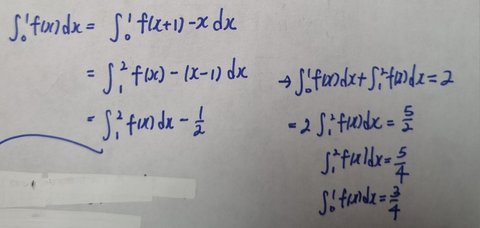 ∫₀¹f(x)dx = ∫₀¹ f(x+1)-x dx
= ∫₁² f(x)-(x-1) dx
= ∫₁² f(x)dx - 1/2
→ ∫₀¹f(x)dx+∫₁²f(x)dx=2
= 2∫₁²f(x)dx = 5/2
∫₁²f(x)dx = 5/4
∫₀¹f(x)dx = 3/4